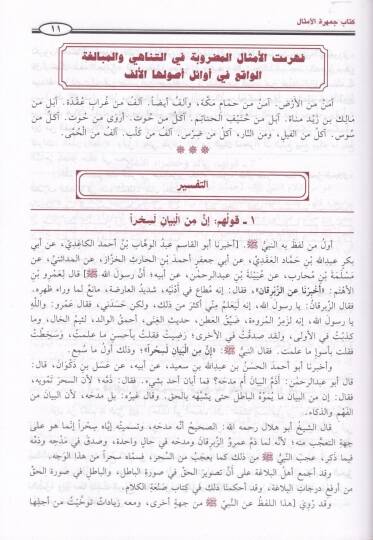 كتاب جمهرة الأمثال
١١
فهرست الأمثال المضروبة في التناهي والمبالغة
الواقع في أوائل أصولها الألف
آمَنُ مِنَ الأرْضِ. آمَنُ مِن حَمَامِ مَكّة، وآلَفُ أيضاً. آلَفُ مِن غُرابِ عُقْدَة. آبَلُ مِن
مَالِكِ بن زَيْدِ مَناة. آبَلُ مِن حُنَيْفِ الحَناتِم. آكَلُ مِن حُوت. أرْوَى مِن حُوت. آكَلُ مِن
سُوس. آكَلُ من الفيل، ومن النّار. آكَلُ مِن ضِرْس. آلَفُ مِن كَلْب. آلَفُ مِن الحُمَّى.
***
التفسير
١ - قولُهم: إنّ مِن الْبيان لَسِحْراً
أولُ من لفظ به النبيُّ ﷺ. [أخبرنا أبو القاسم عبدُ الوهَّاب بْنُ أحمدَ الكاغِديّ، عن أبي
بكر عبدِالله بْنِ حمّاد العَقَديّ، عن أبي جعفرٍ أحمدَ بْنِ الحارثِ الخَزَّاز، عن المدائنيّ، عن
مَسْلَمَةَ بْنِ مُحارب، عن عُيَيْنَةَ بْنِ عبدِالرحمن، عن أبيه؛ أنَّ رسولَ الله ﷺ] قال لِعَمْرِو بْنِ
الأهْتَم: «أَخْبِرْنا عن الزِّبْرِقان»، فقال: إنه مُطاع في أَدْنَيْه، شديدُ العارضة، مانعٌ لما وراء ظهره.
فقال الزِّبرقانُ: يا رسول الله، إنه ليَعلمُ مِنّي أكثرَ من ذلك، ولكن حَسَدني، فقال عمرو: واللهِ
يا رسول الله، إنه لزَمِرُ المُروءة، ضَيِّقُ العَطَن، حديثُ الغِنَى، أحمقُ الوالد، لئيمُ الخال، وما
كذبتُ في الأولى، ولقد صدقتُ في الأُخرى؛ رَضِيتُ فقلتُ بأحسنِ ما علمت، وسَخِطتُ
فقلت بأسوإِ ما علمت. فقال النبيُّ ﷺ: «إنّ مِن البيان لَسِحْراً»؛ وذلك أولُ ما سُمع.
وأخبرنا أبو أحمدَ الحسَنُ بْنُ عبدِالله بن سعيد، عن أبيه، عن عَسَل بْنِ ذَكْوَانَ، قال:
قال أبو عبدالرحمن: أذَمَّ البيانَ أم مدحَه؟ فما أبان أحد بشيء. فقال: ذمَّه؛ لأن السحرَ تَمْويه،
فقال: إن من البيان ما يُمَوِّهُ الباطلَ حتى يشبِّهَه بالحق. وقال غيرُه: بل مدحَه، لأن البيانَ من
الفَهْمِ والذكاء.
قال الشيخُ أبو هلال رحمه الله: الصحيحُ أنه مدحَه، وتسميتُه إيّاه سحراً إنما هو على
جهة التعجُّب منه؛ لأنه لما ذمَّ عمرٌو الزِّبرقانَ ومدحَه في حالٍ واحدة، وصدقَ في مدْحِه وذمِّه
فيما ذكر، عجِبَ النبيُّ ﷺ من ذلك كما يعجبُ من السِّحر؛ فسمّاه سحراً من هذا الوجه.
وقد أجمع أهلُ البلاغة على أنَّ تصويرَ الحقِّ في صورة الباطل، والباطلِ في صورة الحقّ
من أرفع درجاتِ البلاغة، وقد أحكمنا ذلك في كتاب صَنْعَةِ الكلام.
وقد رُوِيَ [هذا اللفظ عن النَّبيّ ﷺ من جهةٍ أخرى، ومعه زياداتٌ توخَّيتُ من أجلها